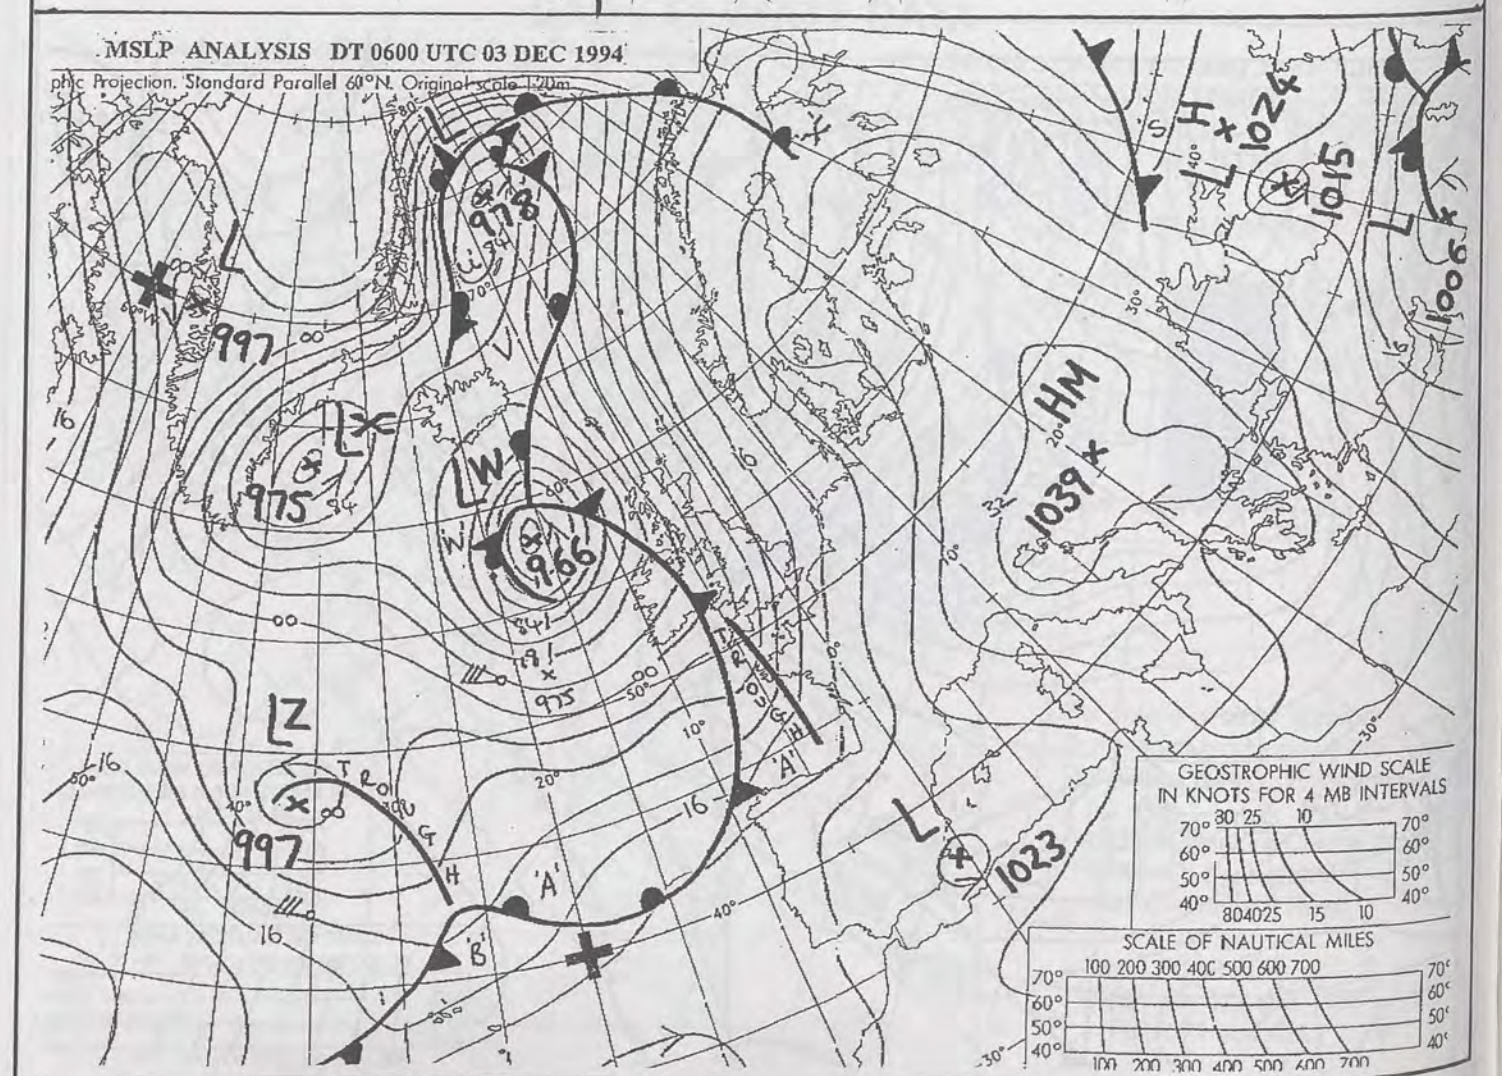 MSLP ANALYSIS DT 0600 UTC 03 DEC 1994
phic Projection. Standard Parallel 60°N. Original scale 1:20m
L
978
H
1024
L
1015
L
1006
L
997
LX
975
84
LW
966
W
V
V
70°
60°
50°
84
975
00
00
00
16
HM
1039
32
20°
10°
30°
40°
'S'
16
LZ
997
TROUGH
'A'
'B'
TROUGH
'A'
16
16
50°
40°
20°
10°
40°
30°
30°
L
1023
GEOSTROPHIC WIND SCALE
IN KNOTS FOR 4 MB INTERVALS
80 25 10
70° 70°
60° 60°
50° 50°
40° 40°
80 40 25 15 10
SCALE OF NAUTICAL MILES
100 200 300 400 500 600 700
70° 70°
60° 60°
50° 50°
40° 40°
100 200 300 400 500 600 700